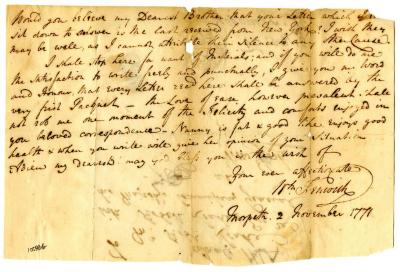 Would you believe my Dearest Brother that your Letter which I now
sit down to answer is the last received from New York? I wish they
may be well, as I cannot attribute their Silence to any other cause
I shall stop here for want of Materials; and if you write do me
the Satisfaction to write freely and punctually, I give you my Word
and Honour that every Letter rec'd here shall be answered by the
very first Pacquet — the Love of ease however prevalent shall
not rob me one moment of the Felicity and comforts enjoyed in
your beloved correspondence — Nanny is fat & good like enjoys good
health & when you write note give her opinion of your Situation
Adieu my dearest: may God bless you is the wish of
Your ever affectionate
Morpeth 2 November 1771